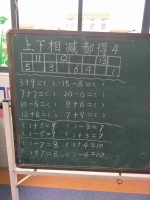 上下相减都得4
11 12 13
5 3 6 4 1
3+9=( ) 15-8=( )
7+7=( ) 20-0=( )
10-6=( ) 8+6=( )
12+8=( ) 7+9=( )
( )+5=9 ( )-3=7
( )-5=9 ( )+3=7
( )-7=8 ( )+4=10
( )+7=8 ( )-4=10